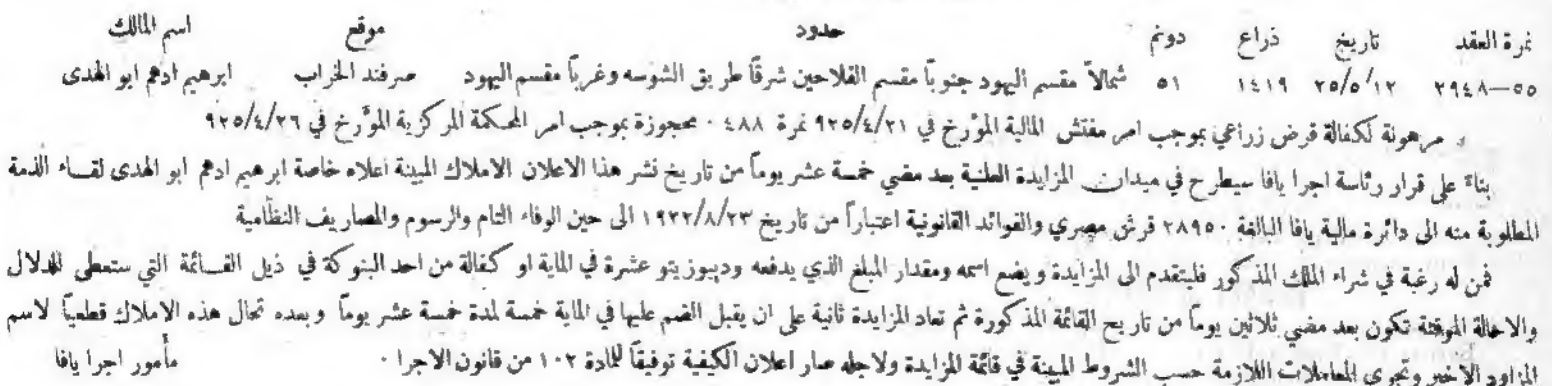 نمرة العقد تاريخ ذراع دونم حدود موقع اسم المالك
٥٥—٢٩٤٨ ٢٥/٥/١٢ ١٤١٩ ٥١ شمالاً مقسم اليهود جنوباً مقسم الفلاحين شرقاً طريق الشوسه وغرباً مقسم اليهود صرفند الخراب ابرهيم ادهم ابو الهدى
مرهونة لكفالة قرض زراعي بموجب امر مفتش المالية المؤرخ في ٩٢٥/٤/٢١ نمرة ٤٨٨ ٠ محجوزة بموجب امر المحكمة المركزية المؤرخ في ٩٢٥/٤/٢٦
بناءً على قرار رئاسة اجرا يافا سيطرح في ميدان المزايدة العلنية بعد مضي خمسة عشر يوماً من تاريخ نشر هذا الاعلان الاملاك المبينة اعلاه خاصة ابرهيم ادهم ابو الهدى لقاء الذمة
المطلوبة منه الى دائرة مالية يافا البالغة ٢٨٩٥٠ قرش مصري والفوائد القانونية اعتباراً من تاريخ ١٩٢٢/٨/٢٣ الى حين الوفاء التام والرسوم والمصاريف النظامية
فمن له رغبة في شراء الملك المذكور فليتقدم الى المزايدة ويضع اسمه ومقدار المبلغ الذي يدفعه وديبوزيتو عشرة في الماية او كفالة من احد البنوكة في ذيل القائمة التي ستعطى للدلال
والاحالة الموقتة تكون بعد مضي ثلاثين يوماً من تاريخ القائمة المذكورة ثم تعاد المزايدة ثانية على ان يقبل الضم عليها في الماية خمسة لمدة خمسة عشر يوماً وبعده تحال هذه الاملاك قطعياً لاسم
المزاود الاخير وتجرى المعاملات اللازمة حسب الشروط المبينة في قائمة المزايدة ولاجله صار اعلان الكيفية توفيقاً للمادة ١٠٢ من قانون الاجرا ٠ مأمور اجرا يافا